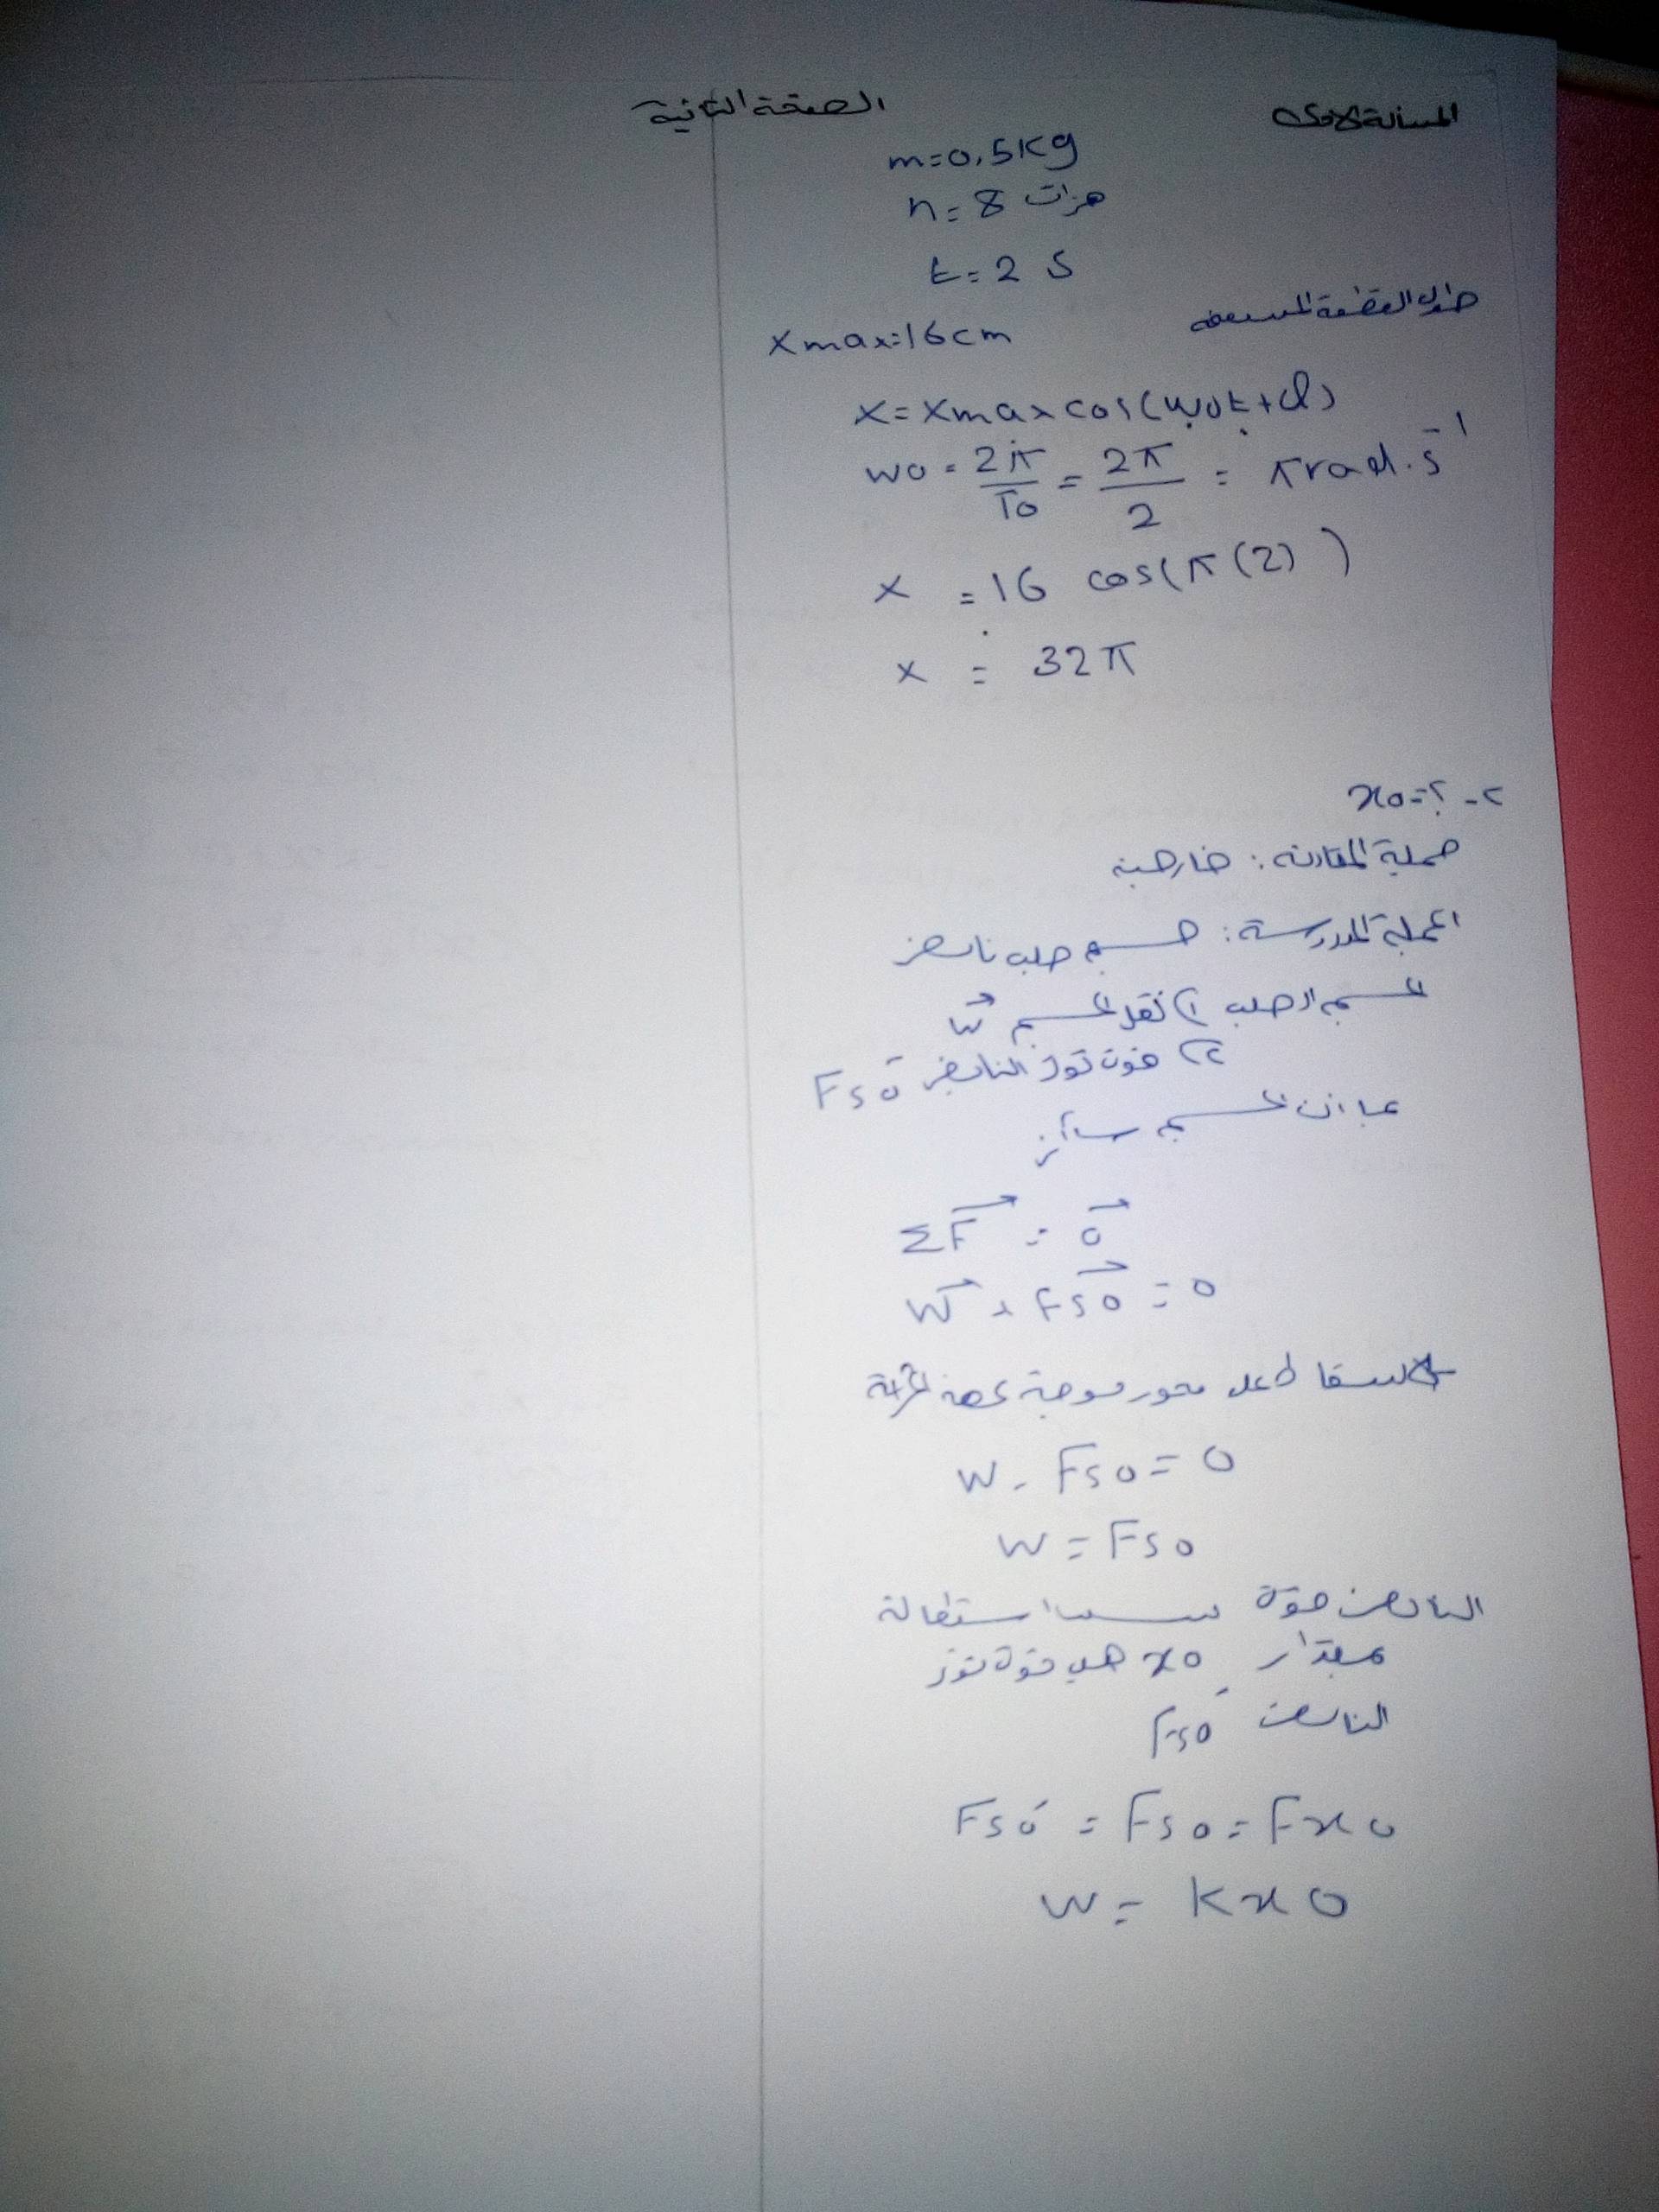 المسألة الاولى
الصفحة الثانية
m=0,5Kg
n=8 هزات
t=2 S
طول القطعة المستقيمة
xmax=16cm
x=xmax cos(w0t+φ)
w0 = 2π/T0 = 2π/2 = π rad.s⁻¹
x = 16 cos(π(2))
x = 32π
٢- x0=؟
جملة المقارنة: خارجية
الجملة المدروسة: جسم صلب نابض
الجسم الصلب ١) ثقل الجسم W⃗
٢) قوة توتر النابض Fs0
بما ان الجسم ساكن
ΣF⃗ = 0⃗
W⃗ + Fs0⃗ = 0
بالاسقاط على محور موجه بجهة
W - Fs0 = 0
W = Fs0
النابض قوة تسبب استطالة
بمقدار x0 هي قوة توتر
النابض Fs0′
Fs0′ = Fs0 = Fx0
W = Kx0